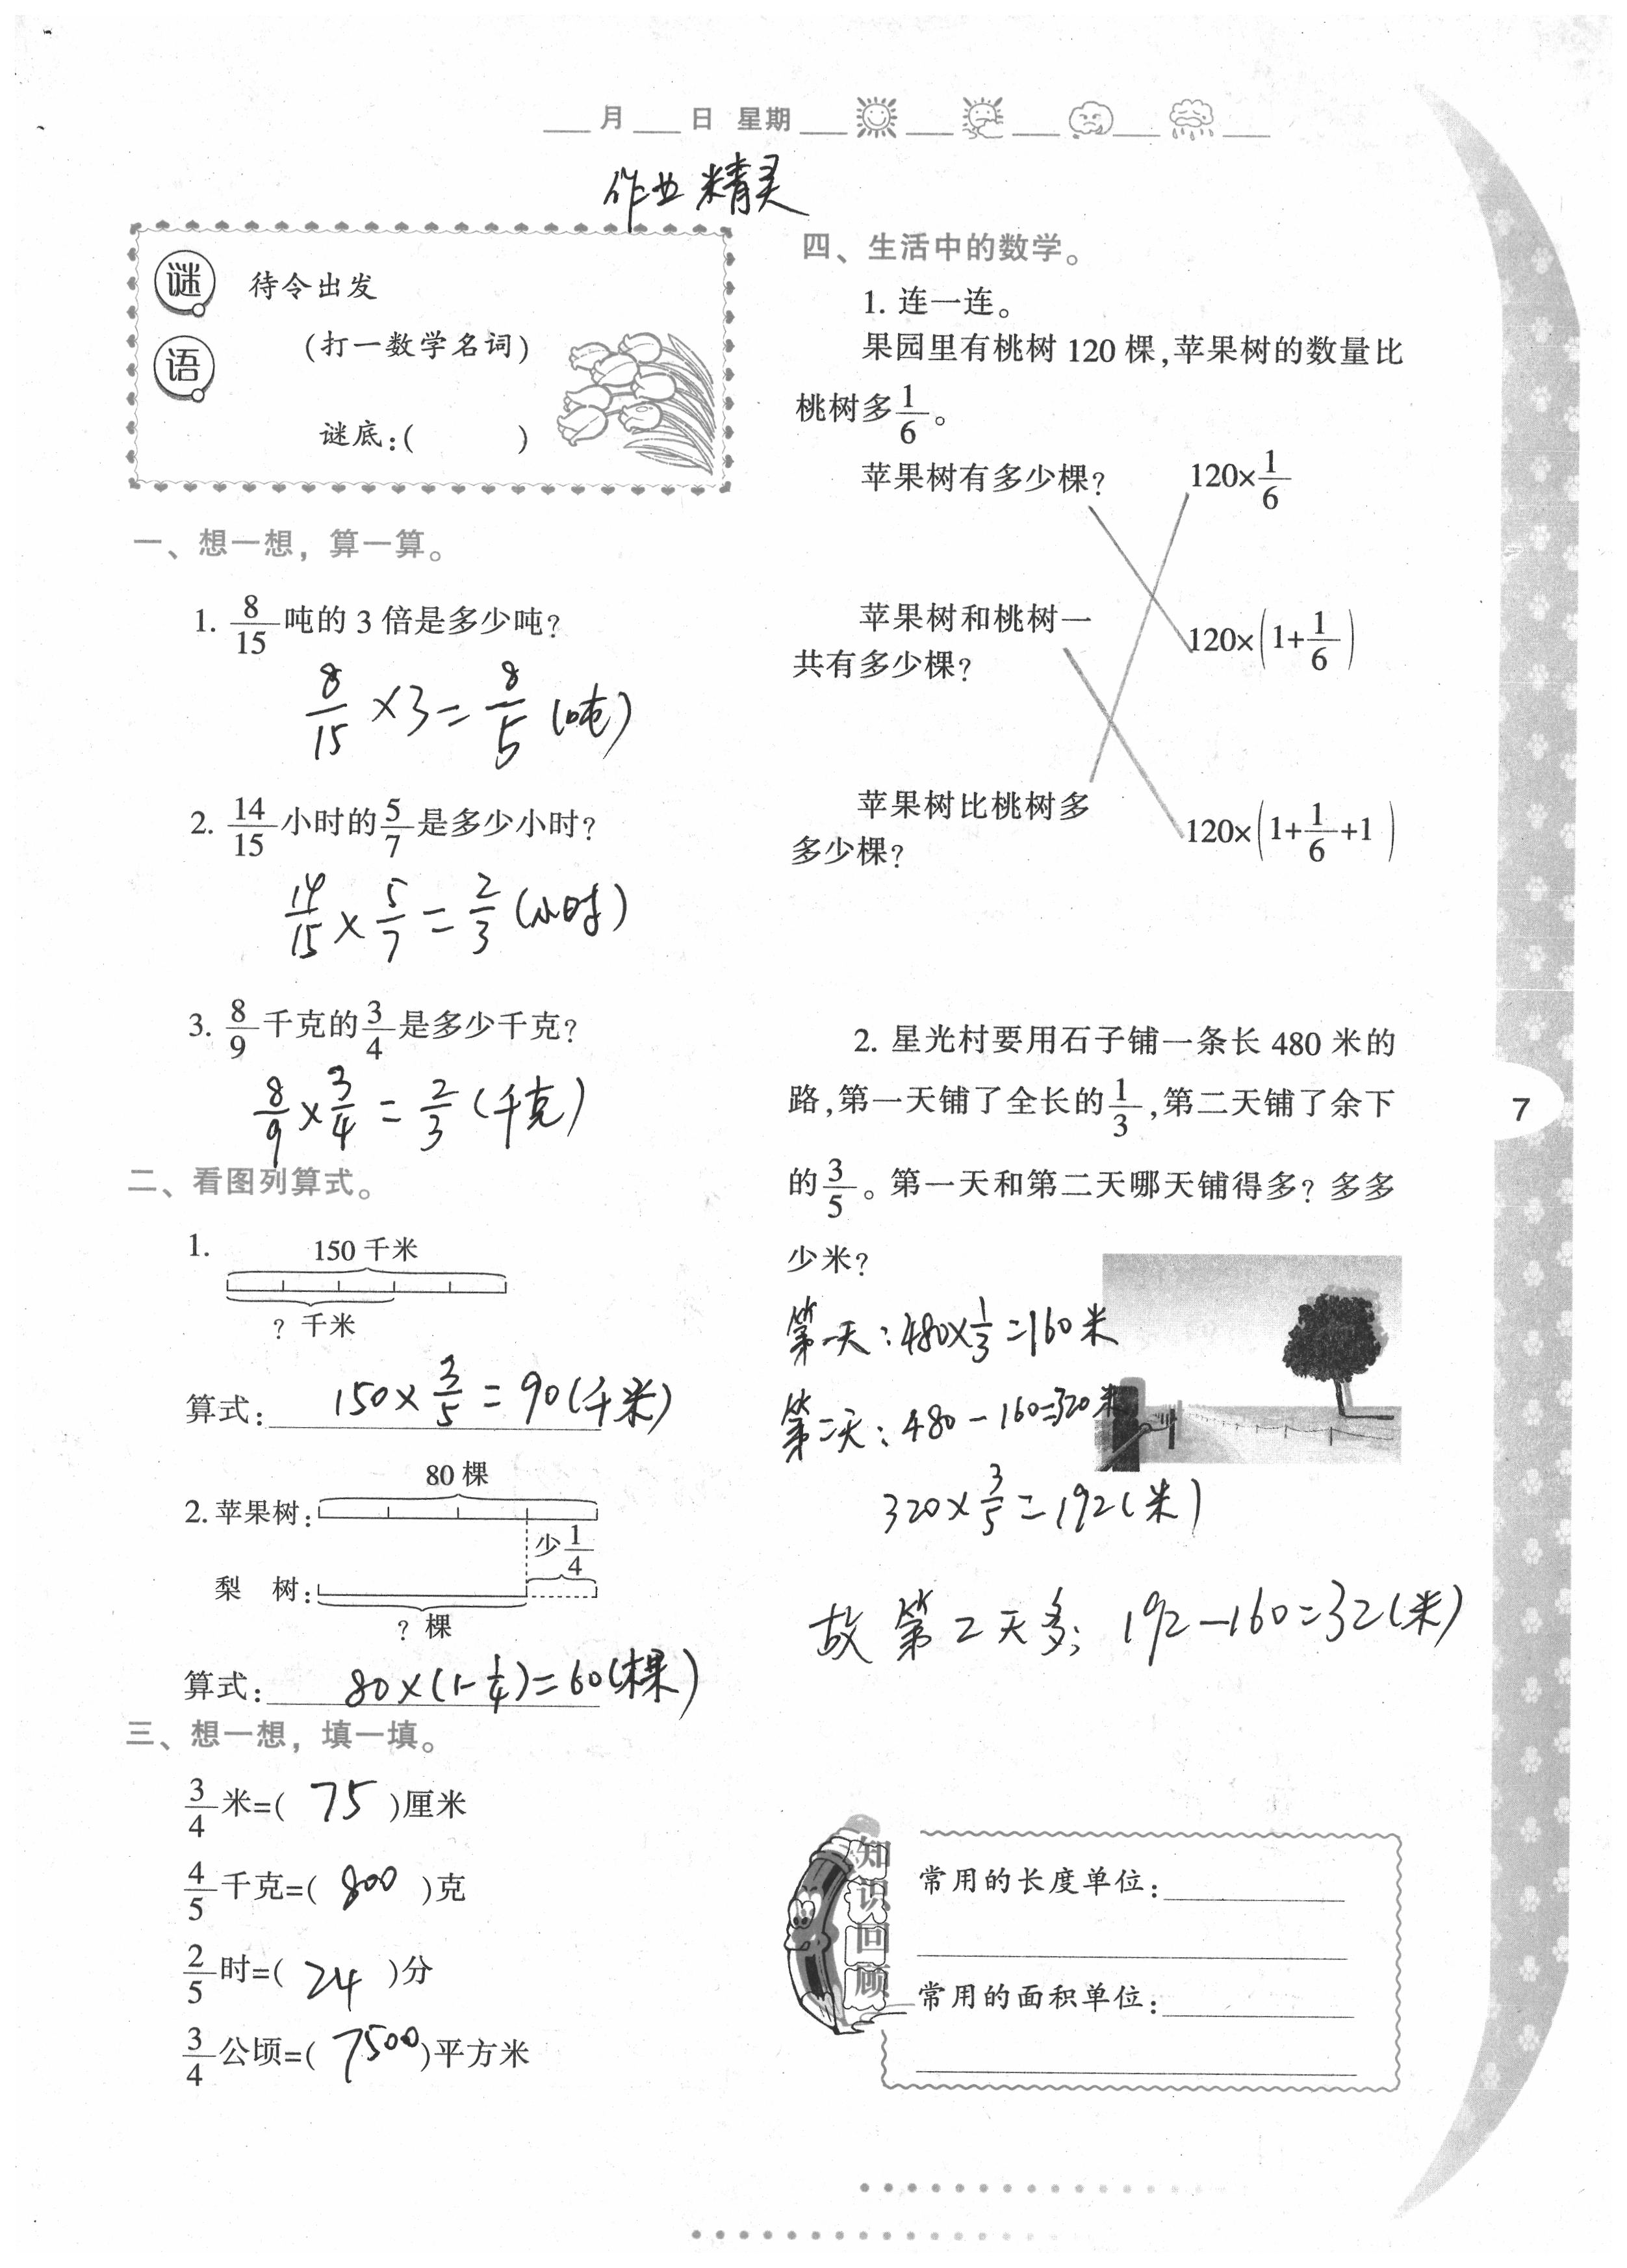 ___月___日 星期___ ___ ___ ___ ___
作业精灵
谜语
待令出发
(打一数学名词)
谜底:( )
一、想一想，算一算。
1. 8/15吨的 3 倍是多少吨?
8/15×3=8/5(吨)
2. 14/15小时的5/7是多少小时?
14/15×5/7=2/3(小时)
3. 8/9千克的3/4是多少千克?
8/9×3/4=2/3(千克)
二、看图列算式。
1.
150 千米
? 千米
算式:150×3/5=90(千米)
80 棵
2. 苹果树:
少1/4
梨 树:
? 棵
算式:80×(1-1/4)=60(棵)
三、想一想，填一填。
3/4米=( 75 )厘米
4/5千克=( 800 )克
2/5时=( 24 )分
3/4公顷=( 7500 )平方米
四、生活中的数学。
1. 连一连。
果园里有桃树 120 棵,苹果树的数量比
桃树多1/6。
苹果树有多少棵? 120×1/6
苹果树和桃树一
共有多少棵?
120×(1+1/6)
苹果树比桃树多
多少棵?
120×(1+1/6+1)
2. 星光村要用石子铺一条长 480 米的
路,第一天铺了全长的1/3,第二天铺了余下
的3/5。第一天和第二天哪天铺得多? 多多
少米?
第一天:480×1/3=160米
第二天:480-160=320米
320×3/5=192(米)
故第2天多; 192-160=32(米)
知识回顾
常用的长度单位:
常用的面积单位:
7